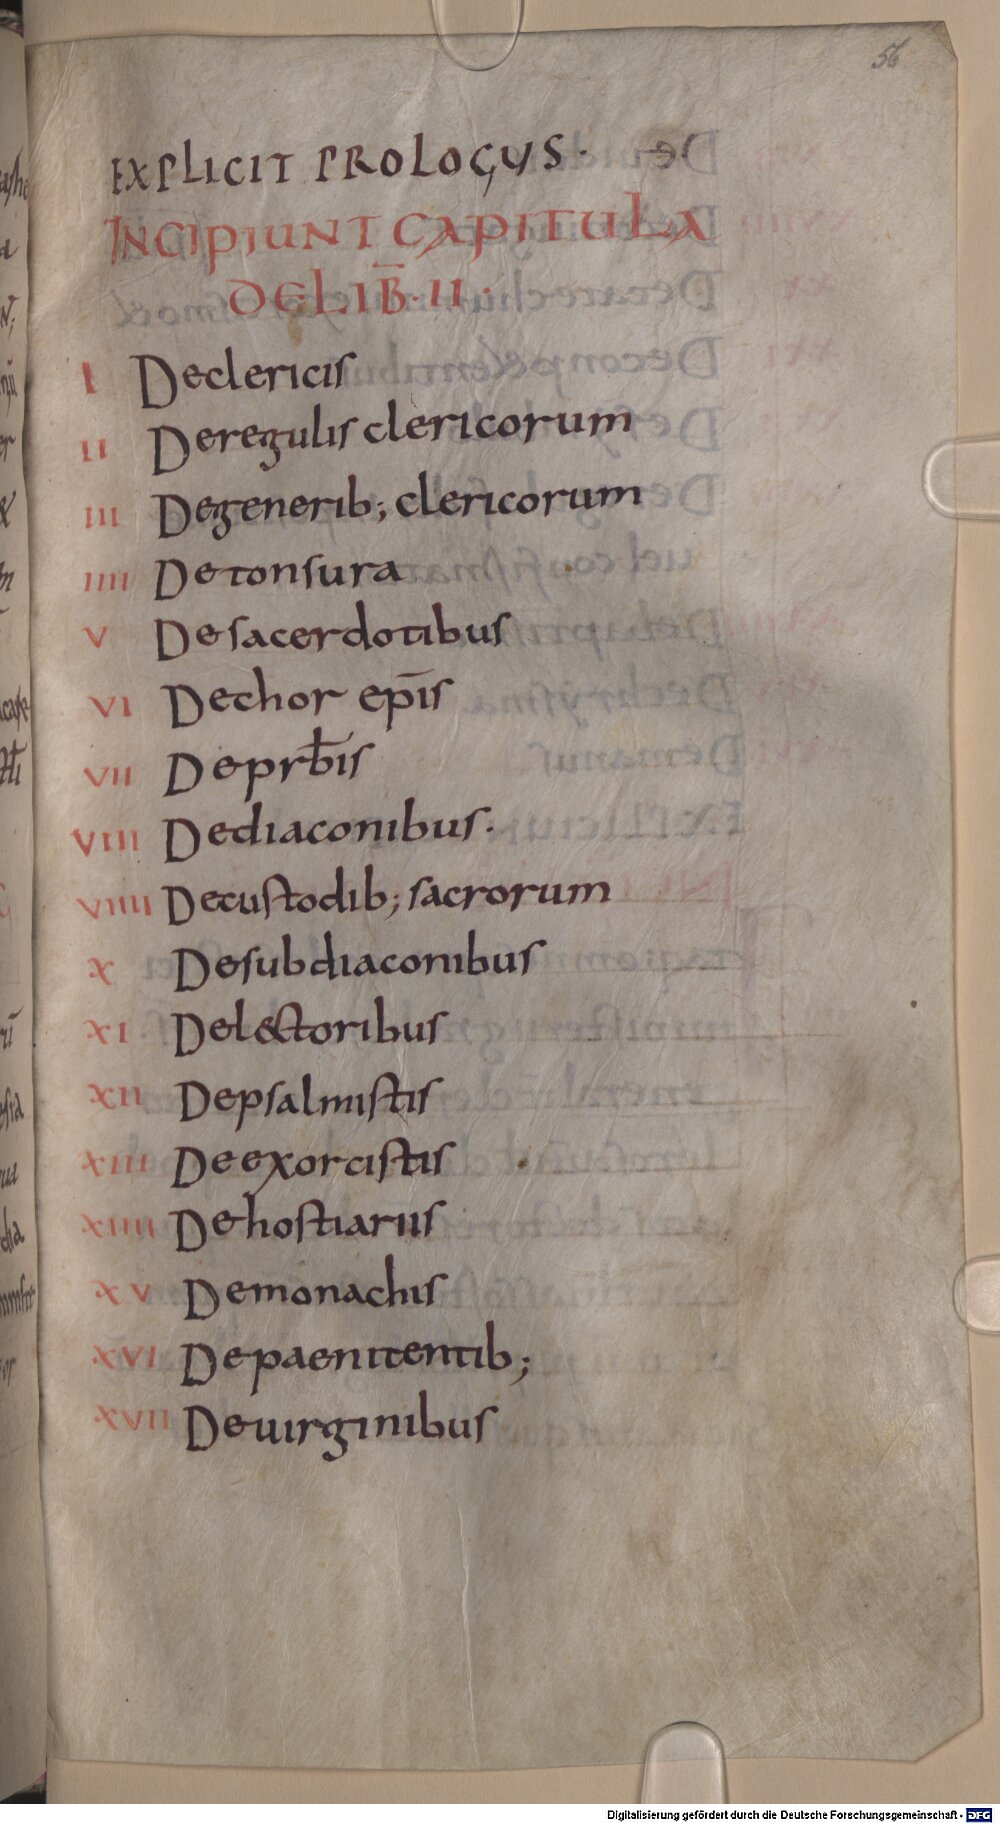 56
EXPLICIT PROLOGUS·
INCIPIUNT CAPITULA
DE LIB̄·II·
I De clericis
II De regulis clericorum
III De generib; clericorum
IIII De tonsura
V De sacerdotibus
VI De chor ep̄is
VII De prb̄is
VIII De diaconibus·
VIIII De custodib; sacrorum
X De subdiaconibus
XI De lectoribus
XII De psalmistis
XIII De exorcistis
XIIII De hostiariis
XV De monachis
XVI De paenitentib;
XVII De uirginibus
Digitalisierung gefördert durch die Deutsche Forschungsgemeinschaft - DFG